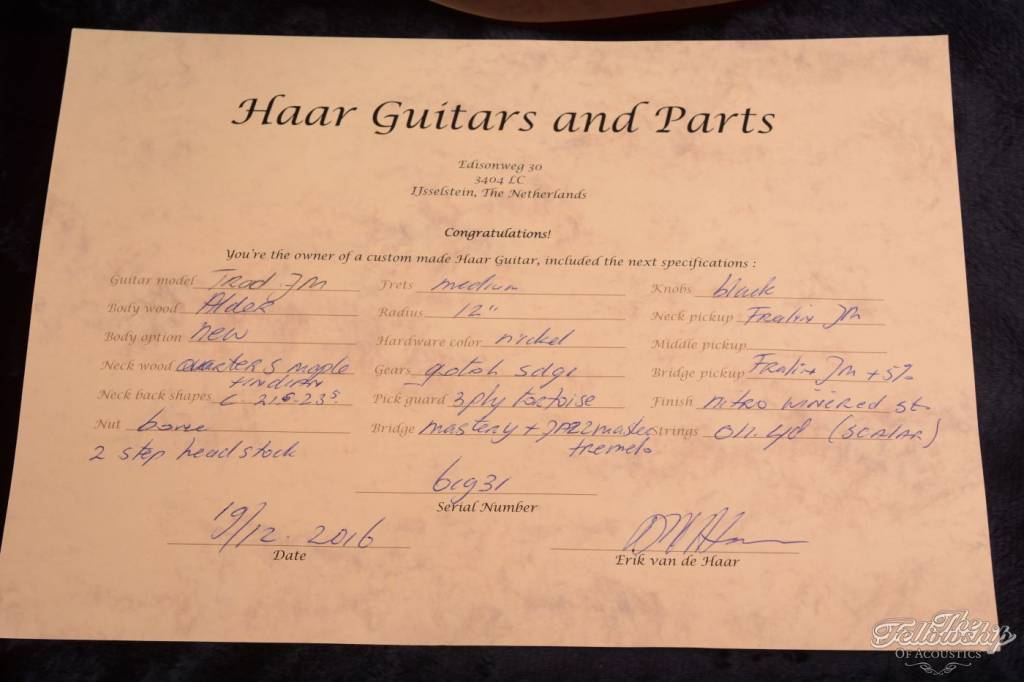 Haar Guitars and Parts
Edisonweg 30
3404 LC
IJsselstein, The Netherlands
Congratulations!
You're the owner of a custom made Haar Guitar, included the next specifications :
Guitar model Trad. JM Frets medium Knobs black
Body wood Alder Radius 12" Neck pickup Fralin JM
Body option new Hardware color nickel Middle pickup
Neck wood quarter s maple Gears gotoh sdgi Bridge pickup Fralin JM +5%
+ indian
Neck back shapes C. 21.5-23.5 Pick guard 3 ply tortoise Finish nitro winered st.
Nut bone Bridge mastery + JAZZmaster Strings 011.48 (SCALAR)
2 step headstock tremelo
Serial Number
19/12. 2016
Date Erik van de Haar
The
Fellowship
OF ACOUSTICS